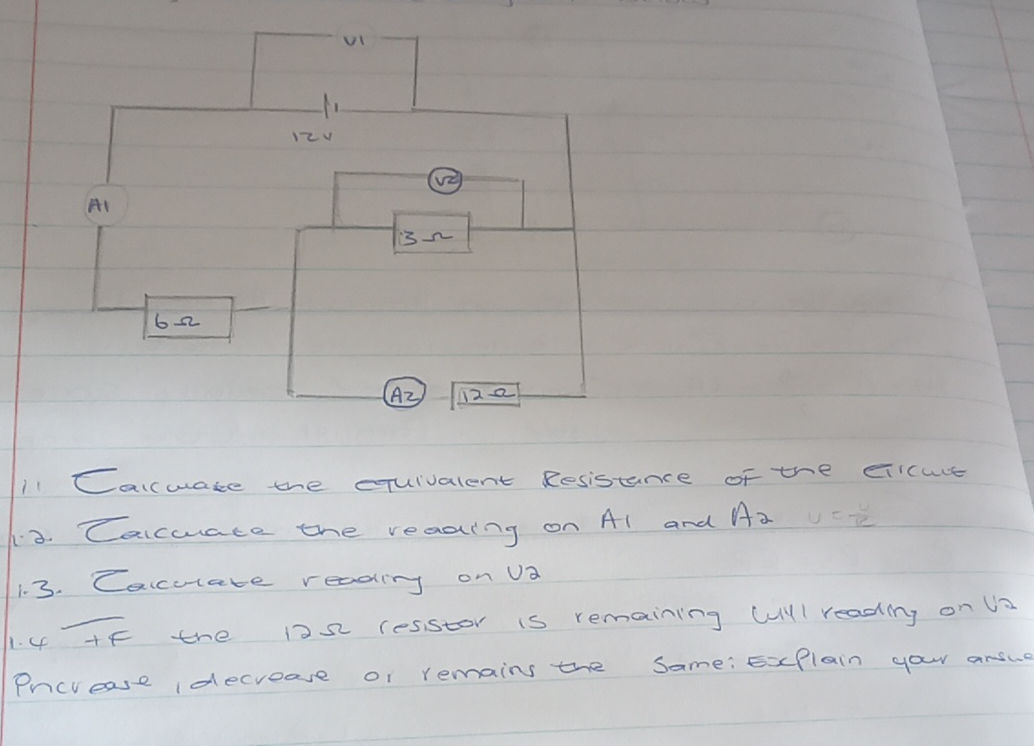 V1
12V
V2
A1
3Ω
6Ω
A2 12Ω
1.1 Calculate the equivalent Resistance of the circuit
1.2. Calculate the reading on A1 and A2
1.3. Calculate reading on V2
1.4 If the 12Ω resistor is remaining will reading on V2
increase, decrease or remains the same: Explain your answe